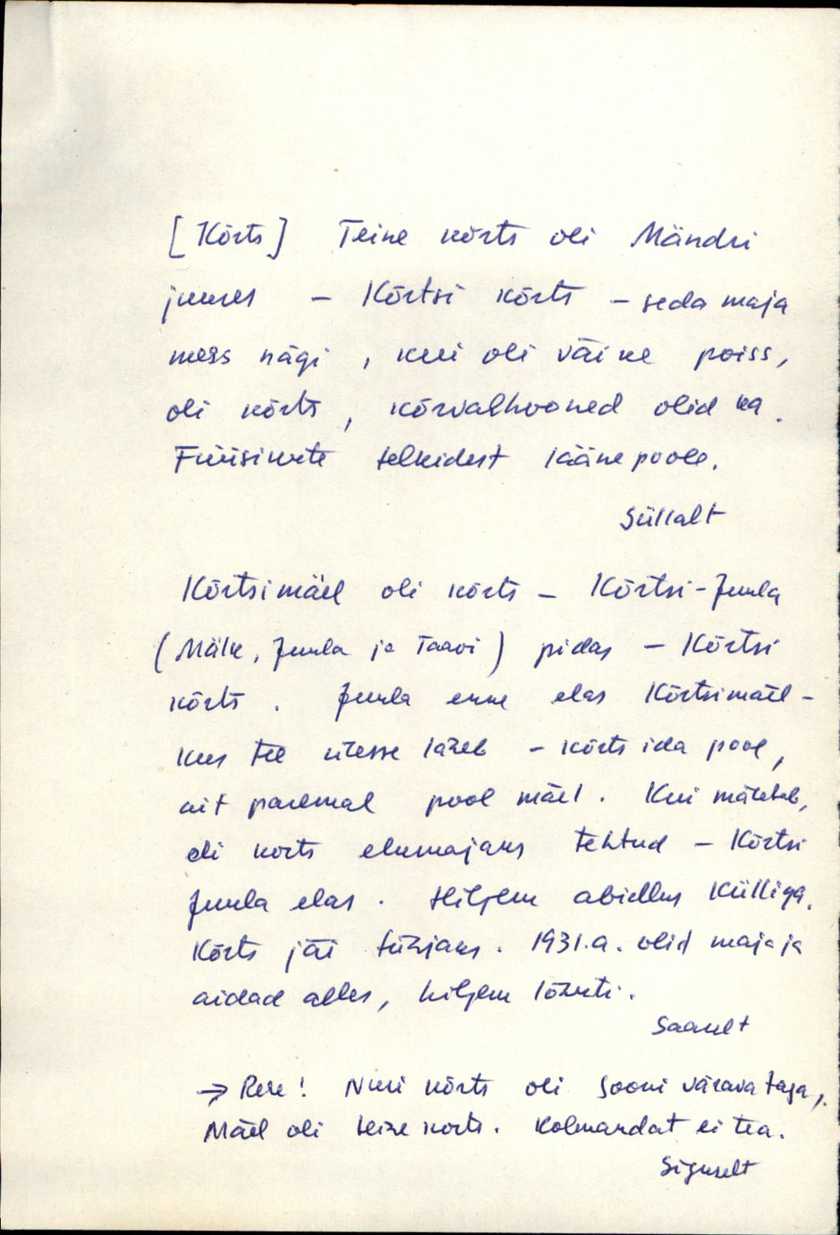 [Kõrts] Teine kõrts oli Mändri
juures – Kõrtsi kõrts – seda maja
mees nägi, kui oli väike poiss,
oli kõrts, kõrvalhooned olid ka.
selkidest läänepoole.
Süllalt
Kõrtsimäel oli kõrts – Kõrtsi-Juula
(Mäle, Juula ja Taavi) pidas – Kõrtsi
kõrts. Juula enne elas Kõrtsimäel –
kus tee ülesse läheb – kõrts ida pool,
ait paremal pool mäel. Kui mäletab,
oli korts elumajaks tehtud – Kõrtsi
Juula elas. Hiljem abiellus Külliga.
Kõrts jäi tühjaks. 1931.a. olid maja ja
aidad alles, hiljem lõhuti.
Saarelt
→ Rere! Niui kõrts oli Sooni värava taga,
Mäel oli teine korts. Kolmandat ei tea.
Sigurelt